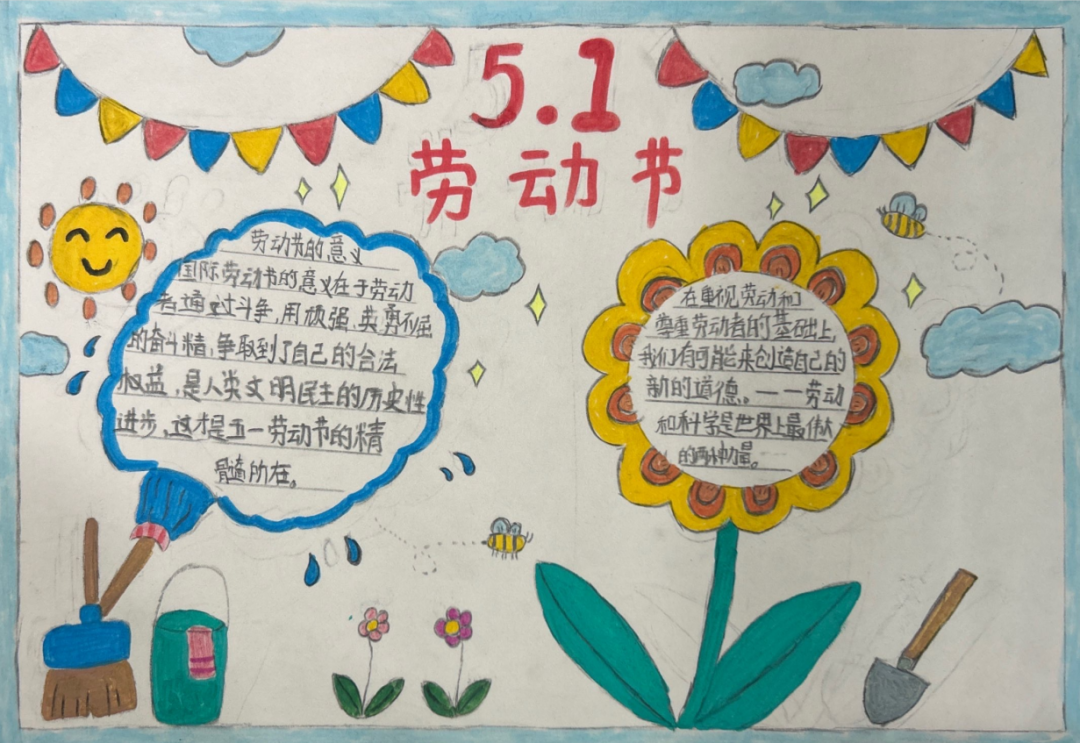 5.1
劳动节
劳动节的意义
国际劳动节的意义在于劳动
者通过斗争,用顽强、英勇不屈
的奋斗精,争取到了自己的合法
权益,是人类文明民主的历史性
进步,这才是五一劳动节的精
髓所在。
在重视劳动和
尊重劳动者的基础上,
我们有可能来创造自己的
新的道德。——劳动
和科学是世界上最伟大
的两种力量。